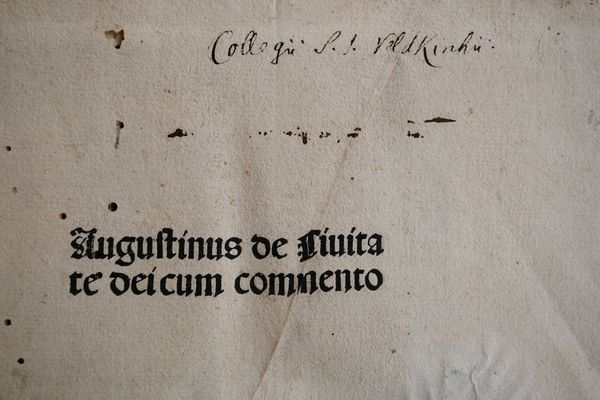 Collegii S. J. Veldkirchii.
Augustinus de Ciuita
te dei cum commento